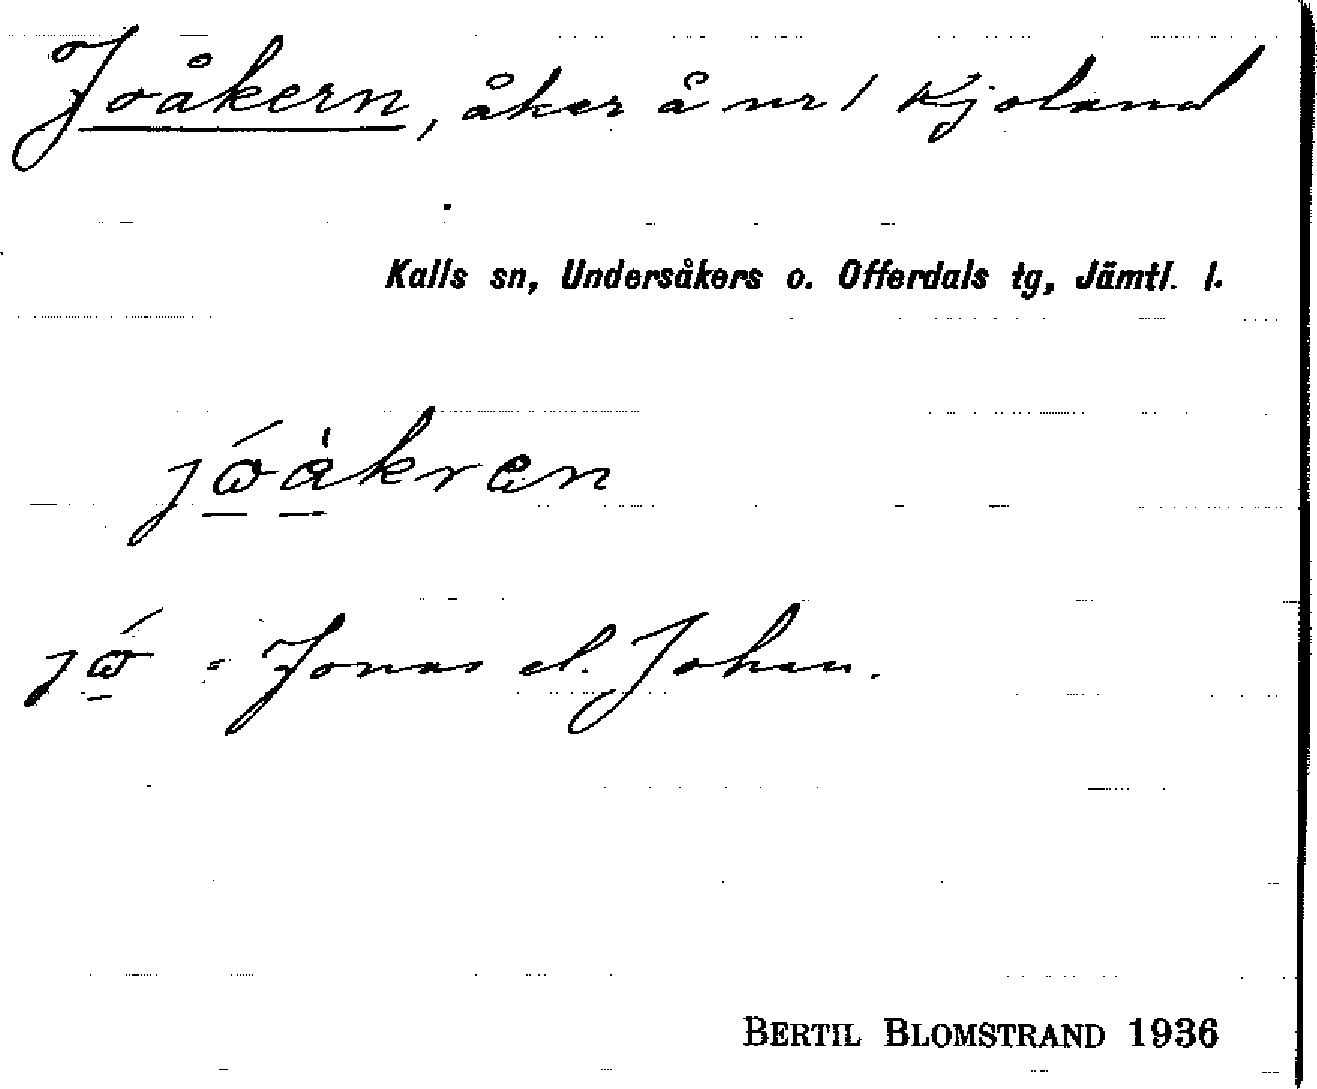 Joåkern, åker å nr 1 Kjoland
Kalls sn, Undersåkers o. Offerdals tg, Jämtl. l.
jóàkren
jó = Jonas el. Johan.
BERTIL BLOMSTRAND 1936